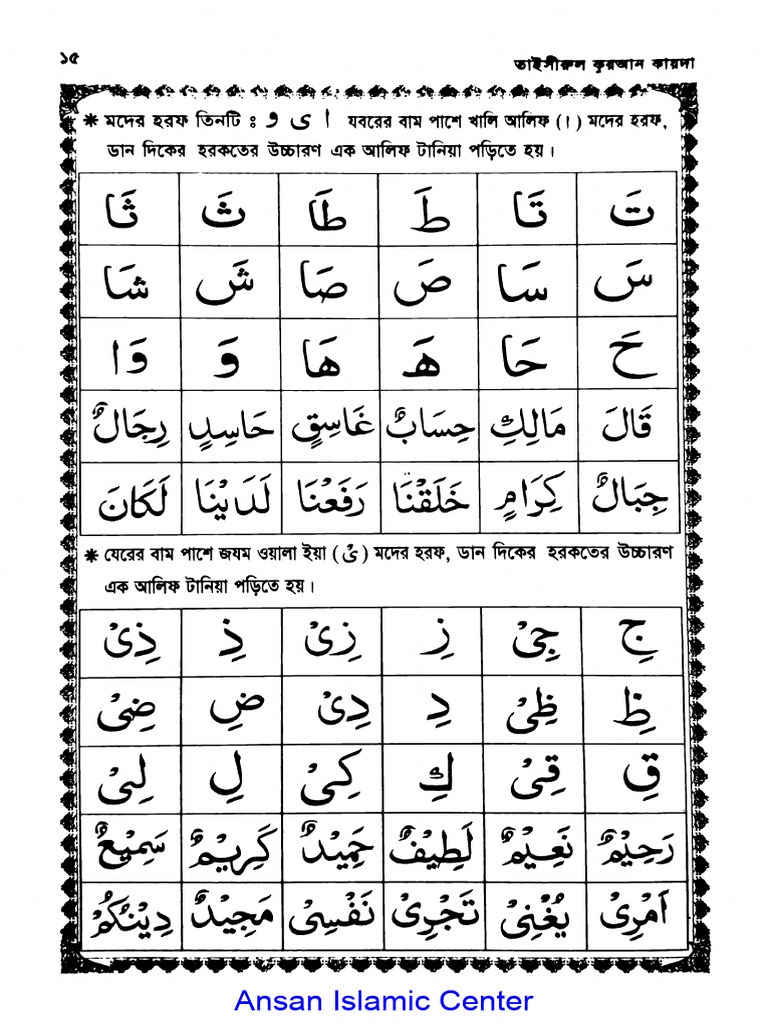 ১৫ তাইসীরুল কুরআন কায়দা
* মদের হরফ তিনটি : و ى ا যবরের বাম পাশে খালি আলিফ (ا) মদের হরফ,
ডান দিকের হরকতের উচ্চারণ এক আলিফ টানিয়া পড়িতে হয়।
تَ تَا طَ طَا ثَ ثَا
سَ سَا صَ صَا شَ شَا
حَ حَا هَ هَا وَ وَا
قَالَ مَالِكِ حِسَابٌ غَاسِقٍ حَاسِدٍ رِجَالٌ
جِبَالٌ كِرَامٍ خَلَقْنَا رَفَعْنَا لَدَيْنَا لَكَانَ
* যেরের বাম পাশে জযম ওয়ালা ইয়া (ىْ) মদের হরফ, ডান দিকের হরকতের উচ্চারণ
এক আলিফ টানিয়া পড়িতে হয়।
جِ جِىْ زِ زِىْ ذِ ذِىْ
ظِ ظِىْ دِ دِىْ ضِ ضِىْ
قِ قِىْ كِ كِىْ لِ لِىْ
رَحِيْمٌ نَعِيْمٌ لَطِيْفٌ حَمِيْدٌ كَرِيْمٌ سَمِيْعٌ
اَمْرِىْ يُغْنِىْ تَجْرِىْ نَفْسِىْ مَجِيْدٌ دِيْنُكُمْ
Ansan Islamic Center